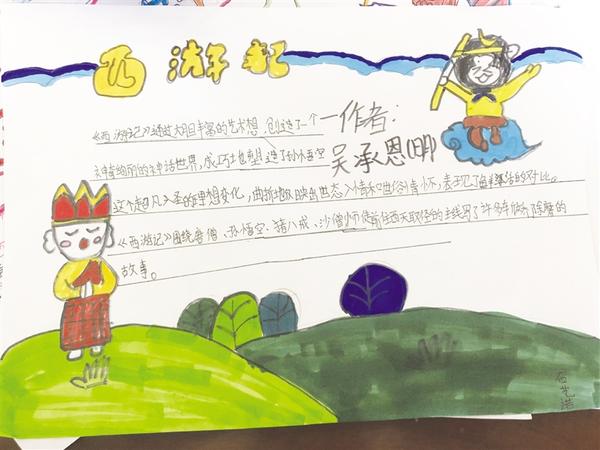 西游记
《西游记》通过大胆丰富的艺术想 创造了一个
神奇绚丽的神话世界,成巧地塑造了孙悟空
这个超凡入圣的理想变化,曲折地反映出世态人情和世俗情怀,表现了鲜活的对比。
《西游记》围绕唐僧、孙悟空、猪八戒、沙僧师徒前往西天取经的主线写了许多除魔的
故事。
一作者:
吴承恩(明)